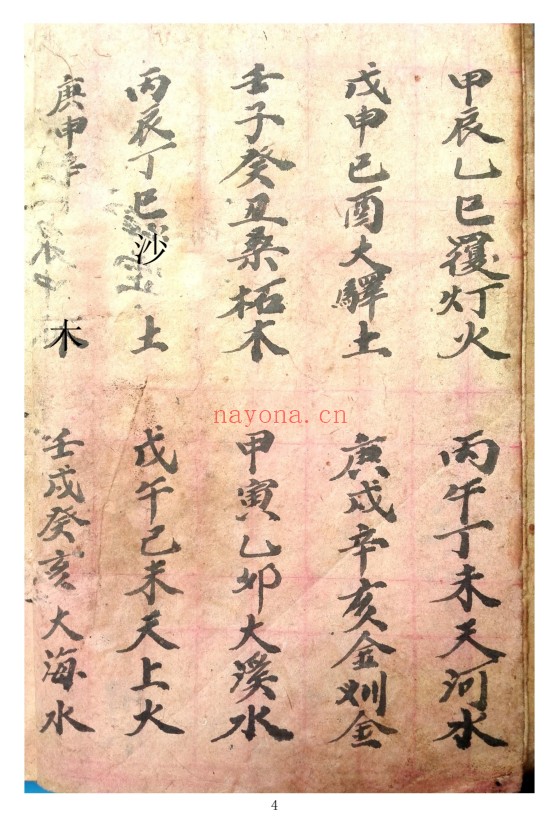 甲辰乙巳覆灯火 丙午丁未天河水
戊申己酉大驛土 庚戌辛亥金釧金
壬子癸丑桑柘木 甲寅乙卯大溪水
丙辰丁巳沙土 戊午己未天上火
庚申辛木 壬戌癸亥大海水
nayona.cn
4